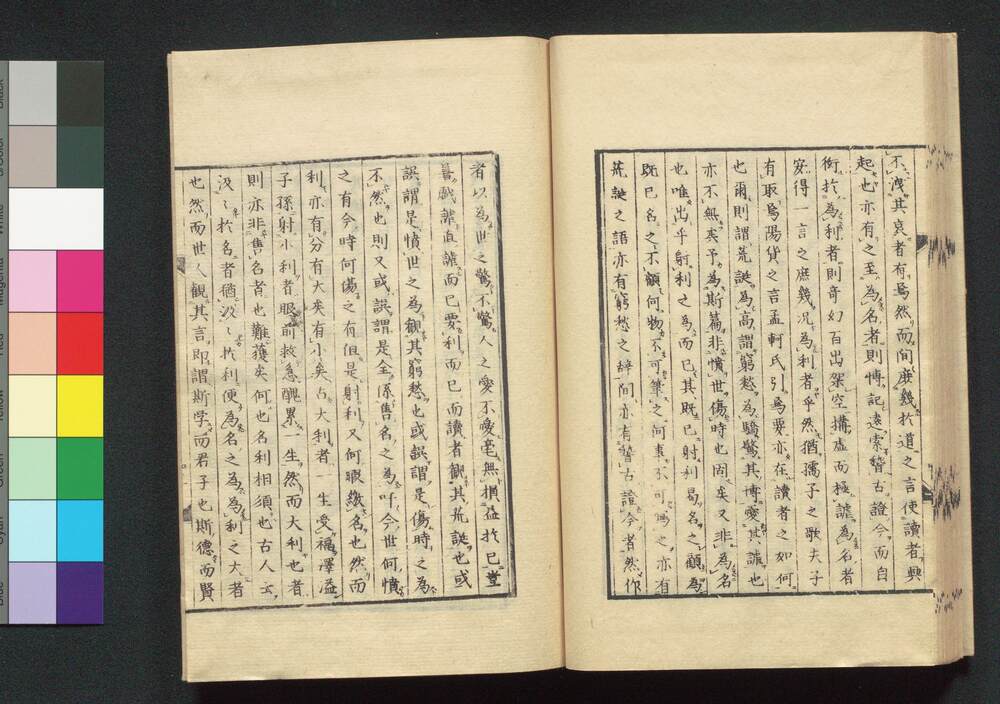 不洩其哀者有焉然而間庶幾於道之言使讀者興
起也亦有之至為名者則博記遠索稽古證今而自
衒於為利者則奇幻百出架空搆虛而極謔為名者
安得一言之庶幾況為利者乎然猶孺子之歌夫子
有取焉陽貨之言孟軻氏引焉要亦在讀者之如何
也爾則謂荒誕為高謂窮愁為驕驚其博愛其謔也
亦不無矣予為斯篇非憤世傷時也固矣又非為名
也唯出乎射利之為而已其既已射利曷名之顧為
既已名之不顧何物不可筆之何事不可為之亦有
荒誕之語亦有窮愁之辭間亦有稽古證今者然作
者以為世之驚不驚人之愛不愛毫無損益於己豈
戲謔直謔而已要利而已而讀者觀其荒誕也或
誤謂是憤世之為觀其窮愁也或誤謂是傷時之為
不然也則又或誤謂是全係售名之為吁今世何憤
之有今時何傷之有但是射利又何暇繳名也然而
利亦有分有大矣有小矣占大利者一生受福澤益
子孫射小利者眼前救急醜累一生然而大利也者
則亦非售名者也難獲矣何也名利相須也古人云
汲〻於名者猶汲〻於利便為名之為為利之大者
也然而世人觀其言即謂斯学而君子也斯德而賢